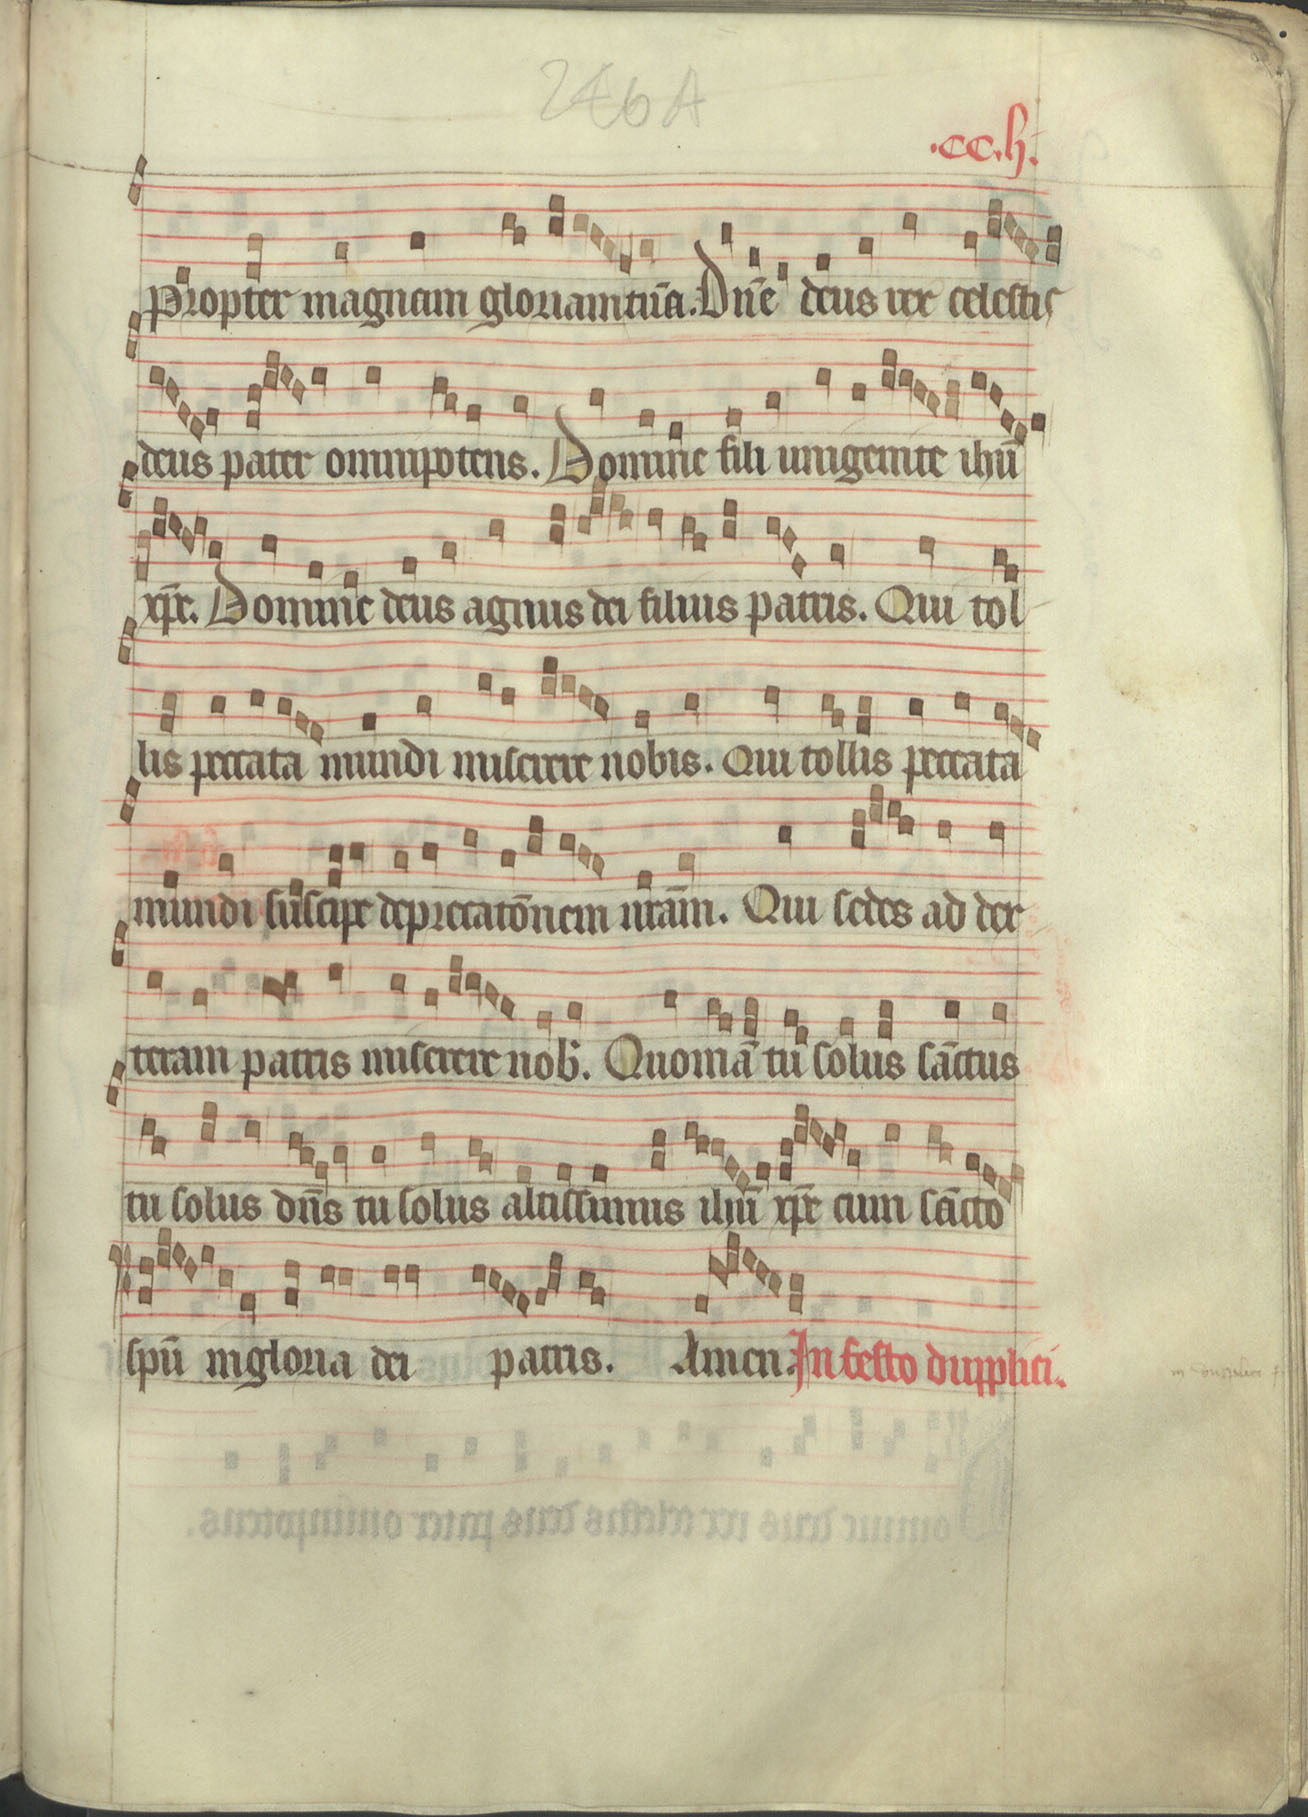 246A
.cc.h.
Propter magnam gloriam tuā. Dn̄e deus rex celestis
deus pater omnipotens. Domine fili unigenite ihū
xp̄e. Domine deus agnus dei filius patris. Qui tol
lis peccata mundi miserere nobis. Qui tollis peccata
mundi suscipe deprecatōnem nrām. Qui sedes ad dex
teram patris miserere nob. Quoniā tu solus sāctus
tu solus dn̄s tu solus altissimus ihū xp̄e cum sācto
spū in gloria dei patris. Amen. In festo dupplici.